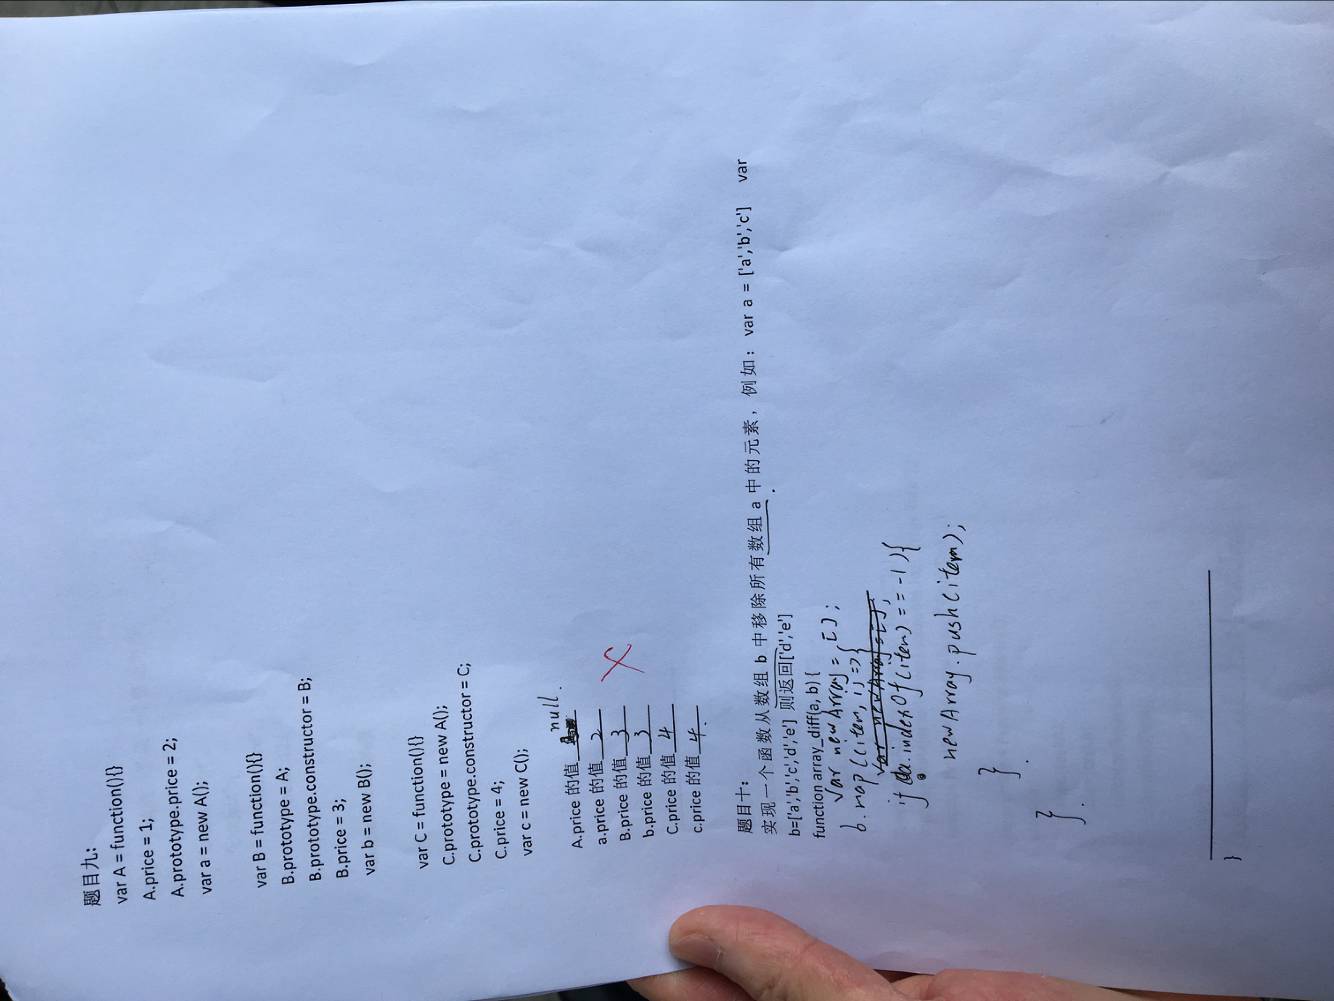 题目九：
var A = function(){}
A.price = 1;
A.prototype.price = 2;
var a = new A();
var B = function(){}
B.prototype = A;
B.prototype.constructor = B;
B.price = 3;
var b = new B();
var C = function(){}
C.prototype = new A();
C.prototype.constructor = C;
C.price = 4;
var c = new C();
A.price 的值 null.
a.price 的值 2
B.price 的值 3
b.price 的值 3
C.price 的值 4
c.price 的值 4.
题目十：
实现一个函数从数组 b 中移除所有数组 a 中的元素，例如：var a = ['a','b','c'] var
b=['a','b','c','d','e'] 则返回['d','e']
function array_diff(a, b) {
var newArray = [];
b.map((item, i) => {
var newArray = [];
if (a.indexOf(item) == -1) {
newArray.push(item);
}.
}.
}